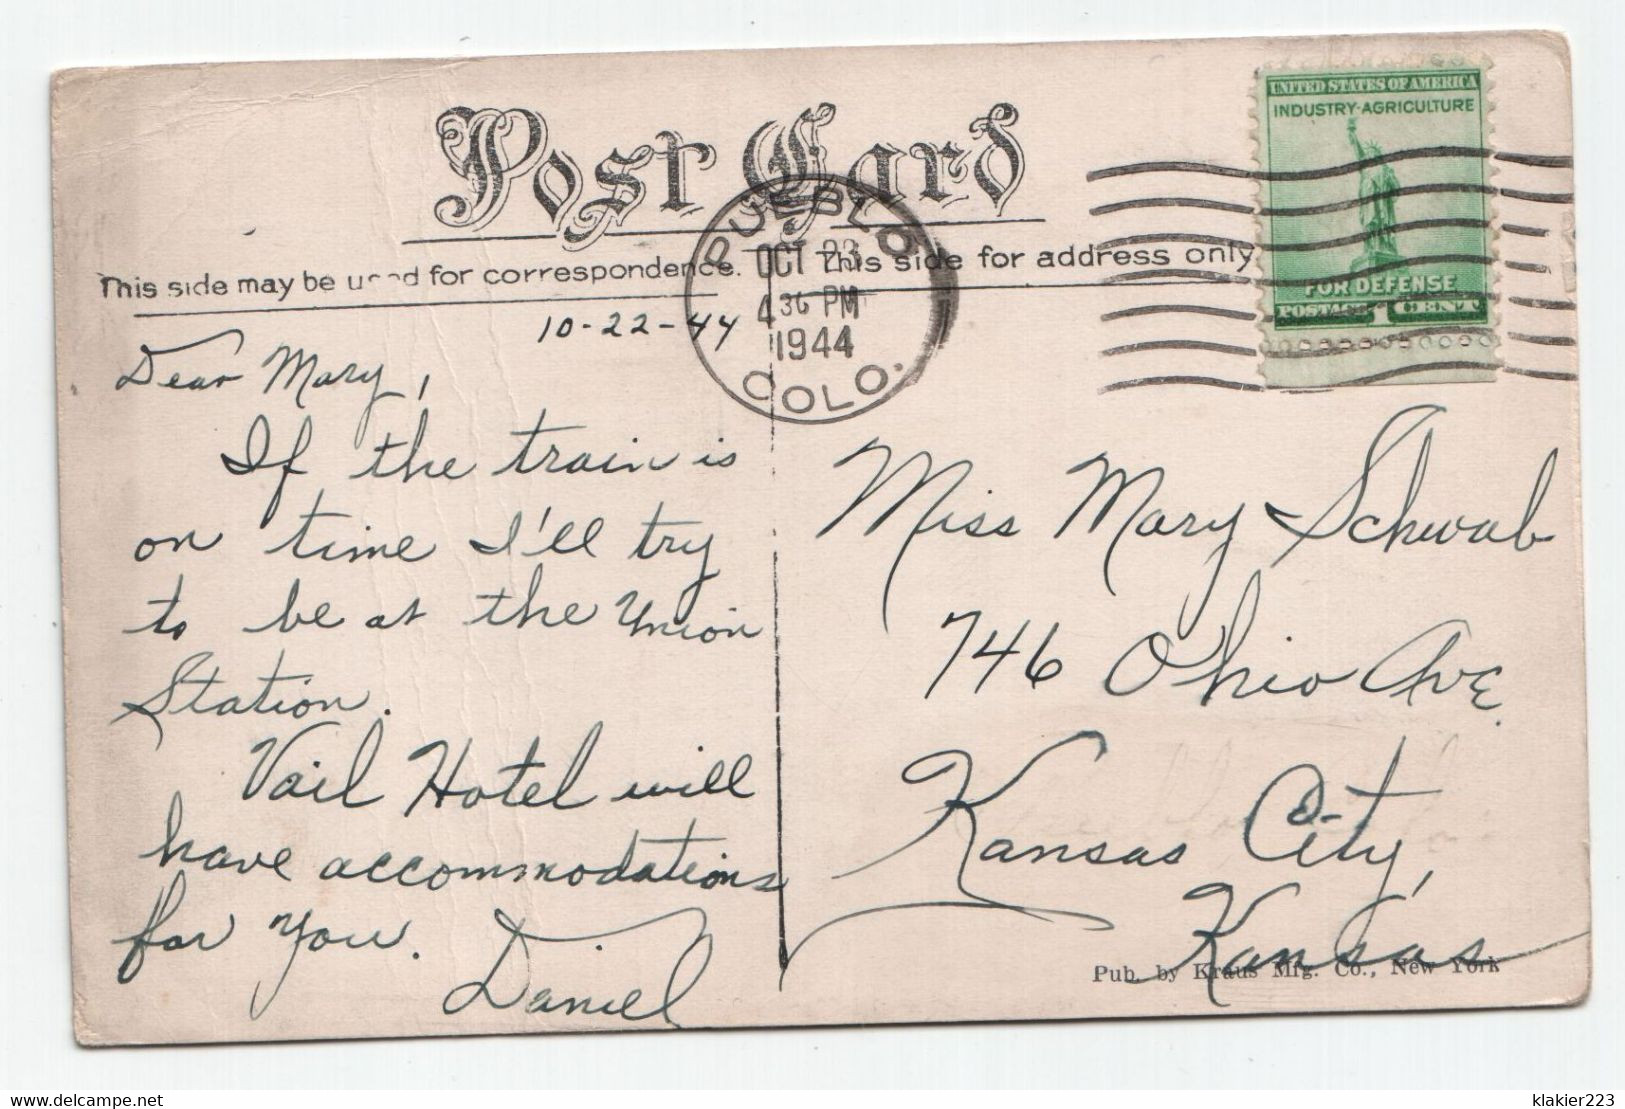 Post Card
This side may be used for correspondence.
This side for address only
PUEBLO
OCT 23
4 30 PM
1944
COLO.
UNITED STATES OF AMERICA
INDUSTRY-AGRICULTURE
FOR DEFENSE
POSTAGE 1 CENT
10-22-44
Dear Mary,
If the train is
on time I'll try
to be at the Union
Station.
Vail Hotel will
have accommodations
for you.
Daniel
Miss Mary Schwab
746 Ohio Ave.
Kansas City,
Kansas
Pub. by Kraus Mfg. Co., New York
delcampe.net
klakier223